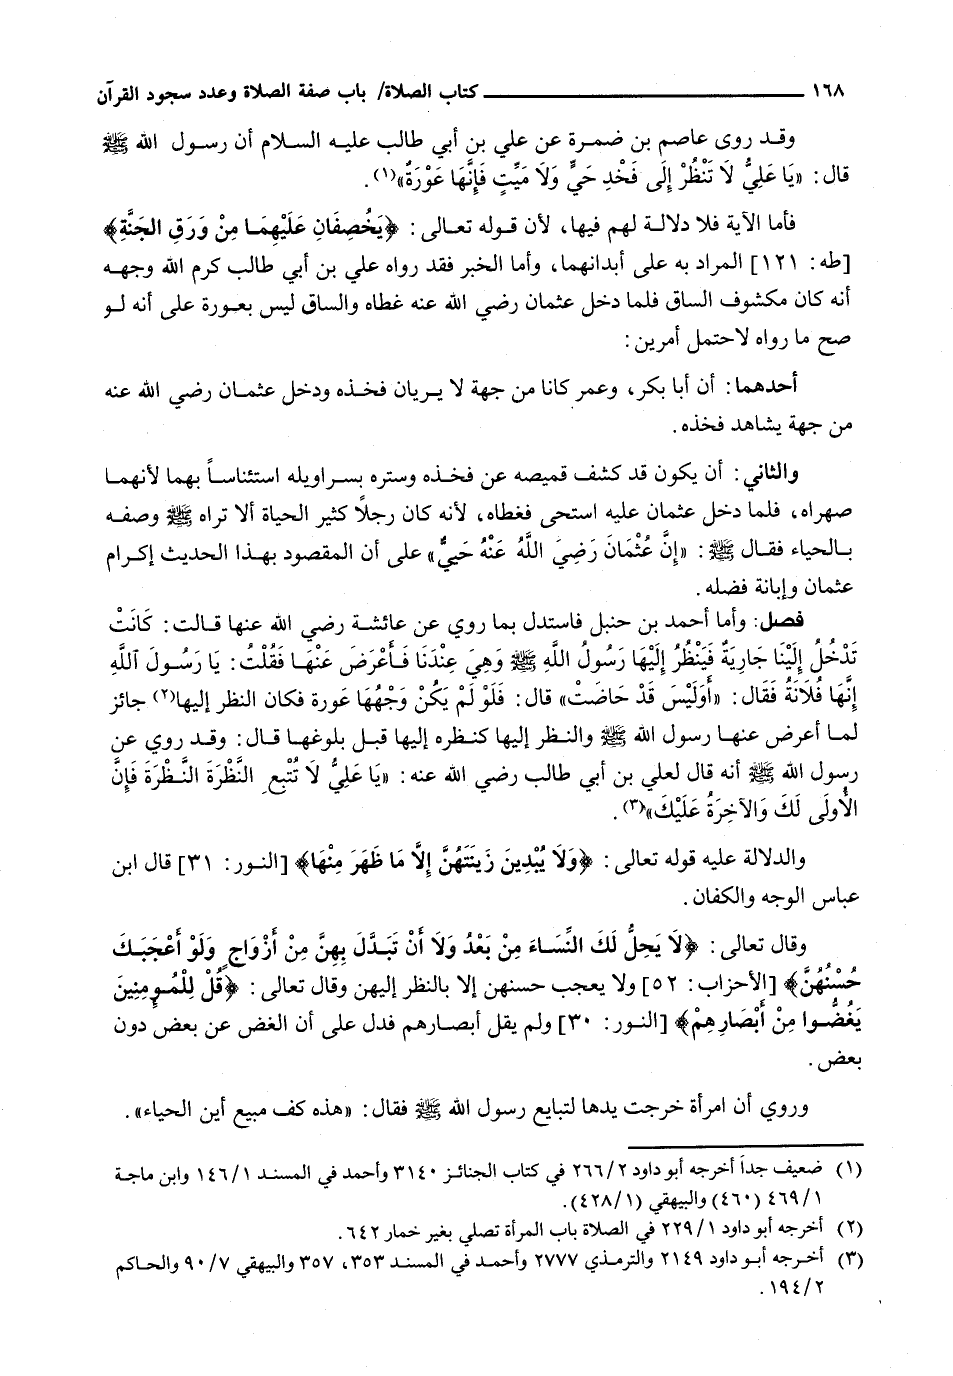 ١٦٨ ــــــــــــــــــــــــــــــــ كتاب الصلاة/ باب صفة الصلاة وعدد سجود القرآن
وقد روى عاصم بن ضمرة عن علي بن أبي طالب عليه السلام أن رسول الله ﷺ
قال: «يَا عَلِيُّ لَا تَنْظُرْ إِلَى فَخْدِ حَيٍّ وَلَا مَيِّتٍ فَإِنَّهَا عَوْرَةٌ»(١).
فأما الآية فلا دلالة لهم فيها، لأن قوله تعالى: ﴿يَخْصِفَانِ عَلَيْهِمَا مِنْ وَرَقِ الجَنَّةِ﴾
[طه: ١٢١] المراد به على أبدانهما، وأما الخبر فقد رواه علي بن أبي طالب كرم الله وجهه
أنه كان مكشوف الساق فلما دخل عثمان رضي الله عنه غطاه والساق ليس بعورة على أنه لو
صح ما رواه لاحتمل أمرين:
أحدهما: أن أبا بكر، وعمر كانا من جهة لا يريان فخذه ودخل عثمان رضي الله عنه
من جهة يشاهد فخذه.
والثاني: أن يكون قد كشف قميصه عن فخذه وستره بسراويله استئناساً بهما لأنهما
صهراه، فلما دخل عثمان عليه استحى فغطاه، لأنه كان رجلاً كثير الحياة ألا تراه ﷺ وصفه
بالحياء فقال ﷺ: «إِنَّ عُثْمَانَ رَضِيَ اللَّهُ عَنْهُ حَيِيٌّ» على أن المقصود بهذا الحديث إكرام
عثمان وإبانة فضله.
فصل: وأما أحمد بن حنبل فاستدل بما روي عن عائشة رضي الله عنها قالت: كَانَتْ
تَدْخُلُ إِلَيْنَا جَارِيَةٌ فَيَنْظُرُ إِلَيْهَا رَسُولُ اللَّهِ ﷺ وَهِيَ عِنْدَنَا فَأَعْرَضَ عَنْهَا فَقُلْتُ: يَا رَسُولَ اللَّهِ
إِنَّهَا فُلَانَةُ فَقَالَ: «أَوَلَيْسَ قَدْ حَاضَتْ» قال: فَلَوْ لَمْ يَكُنْ وَجْهُهَا عَورة فكان النظر إليها(٢) جائز
لما أعرض عنها رسول الله ﷺ والنظر إليها كنظره إليها قبل بلوغها قال: وقد روي عن
رسول الله ﷺ أنه قال لعلي بن أبي طالب رضي الله عنه: «يَا عَلِيُّ لَا تُتْبِعِ النَّظْرَةَ النَّظْرَةَ فَإِنَّ
الْأُولَى لَكَ وَالآخِرَةُ عَلَيْكَ»(٣).
والدلالة عليه قوله تعالى: ﴿وَلَا يُبْدِينَ زِينَتَهُنَّ إِلَّا مَا ظَهَرَ مِنْهَا﴾ [النور: ٣١] قال ابن
عباس الوجه والكفان.
وقال تعالى: ﴿لَا يَحِلُّ لَكَ النِّسَاءَ مِنْ بَعْدُ وَلَا أَنْ تَبَدَّلَ بِهِنَّ مِنْ أَزْوَاجٍ وَلَوْ أَعْجَبَكَ
حُسْنُهُنَّ﴾ [الأحزاب: ٥٢] ولا يعجب حسنهن إلا بالنظر إليهن وقال تعالى: ﴿قُلْ لِلْمُومِنِينَ
يَغُضُّوا مِنْ أَبْصَارِهِمْ﴾ [النور: ٣٠] ولم يقل أبصارهم فدل على أن الغض عن بعض دون
بعض.
وروي أن امرأة خرجت يدها لتبايع رسول الله ﷺ فقال: «هذه كف مبيع أين الحياء».
(١) ضعيف جداً أخرجه أبو داود ٢/ ٢٦٦ في كتاب الجنائز ٣١٤٠ وأحمد في المسند ١/ ١٤٦ وابن ماجة
١/ ٤٦٩ (٤٦٠) والبيهقي (١/ ٤٢٨).
(٢) أخرجه أبو داود ١/ ٢٢٩ في الصلاة باب المرأة تصلي بغير خمار ٦٤٢.
(٣) أخرجه أبو داود ٢١٤٩ والترمذي ٢٧٧٧ وأحمد في المسند ٣٥٣، ٣٥٧ والبيهقي ٧/ ٩٠ والحاكم
٢/ ١٩٤.